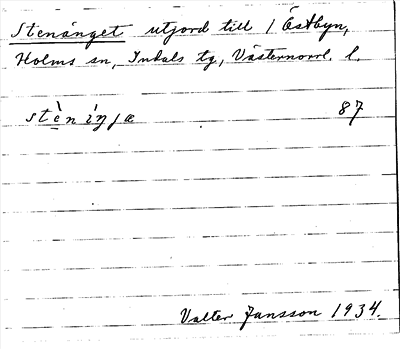 Stenänget utjord till 1 Östbyn,
Holms sn, Indals tg, Västernorrl. l.
stèníŋɟæ 87
Valter Jansson 1934.